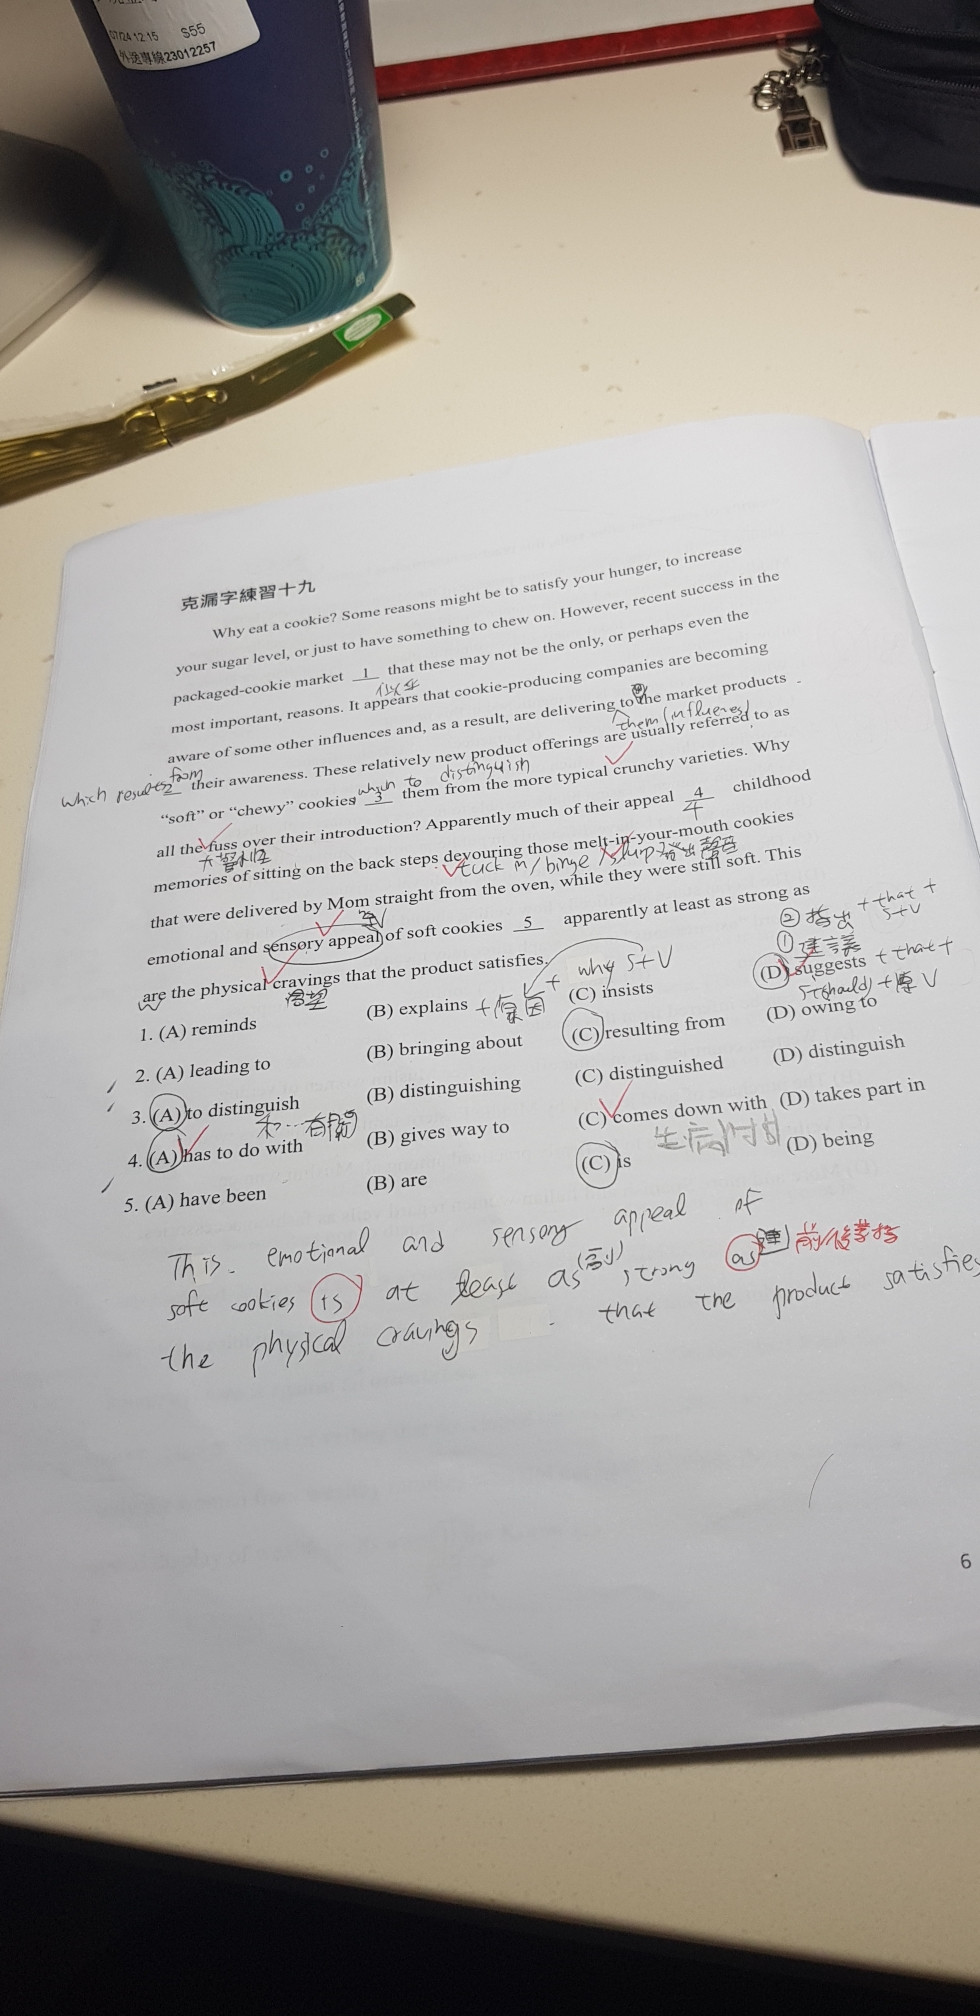 07/24 12:15 S55
外送專線23012257
克漏字練習十九
Why eat a cookie? Some reasons might be to satisfy your hunger, to increase
your sugar level, or just to have something to chew on. However, recent success in the
packaged-cookie market 1 that these may not be the only, or perhaps even the
似乎
most important, reasons. It appears that cookie-producing companies are becoming
aware of some other influences and, as a result, are delivering to the market products
them (influences)
which results from
2 their awareness. These relatively new product offerings are usually referred to as
which to distinguish
“soft” or “chewy” cookies 3 them from the more typical crunchy varieties. Why
all the fuss over their introduction? Apparently much of their appeal 4 childhood
大驚小怪
memories of sitting on the back steps devouring those melt-in-your-mouth cookies
tuck in / binge / slurp 發出聲音
that were delivered by Mom straight from the oven, while they were still soft. This
emotional and sensory appeal of soft cookies 5 apparently at least as strong as
are the physical cravings that the product satisfies.
渴望
② 指出 + that + S+V
① 建議 + that + S (should) + 原 V
+ 原因 + why S+V
1. (A) reminds (B) explains (C) insists (D) suggests
2. (A) leading to (B) bringing about (C) resulting from (D) owing to
3. (A) to distinguish (B) distinguishing (C) distinguished (D) distinguish
和…有關
4. (A) has to do with (B) gives way to (C) comes down with (D) takes part in
5. (A) have been (B) are (C) is (D) being
This emotional and sensory appeal of
soft cookies is at least as (副) strong as 連 前後等接
the physical cravings that the product satisfies
6